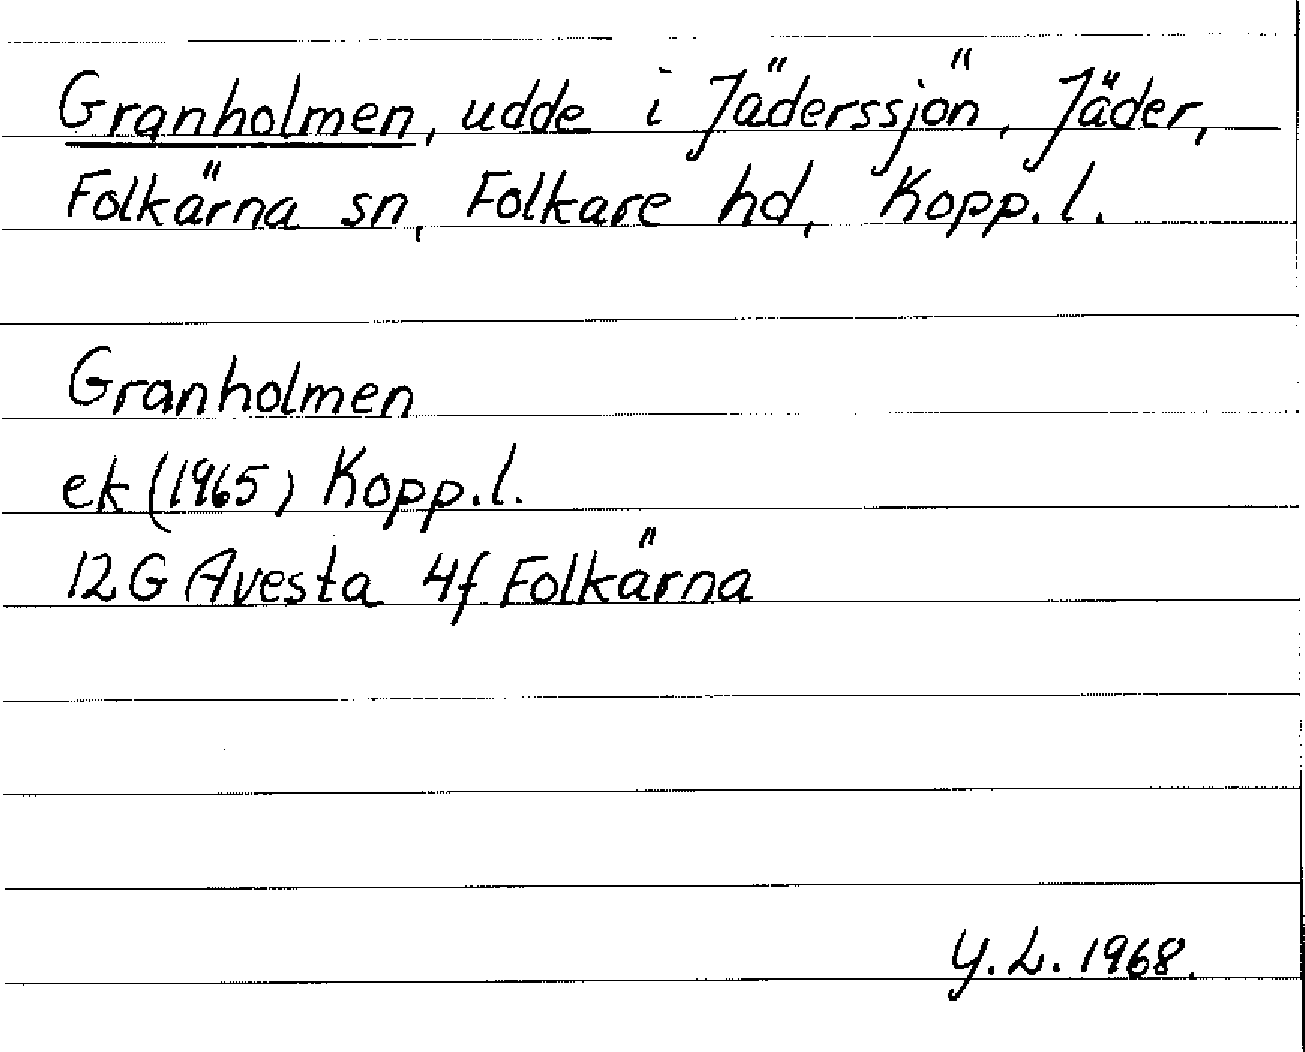 Granholmen, udde i Jäderssjön, Jäder,
Folkärna sn, Folkare hd, Kopp. l.
Granholmen
ek (1965) Kopp. l.
12G Avesta 4f Folkärna
Y. L. 1968.